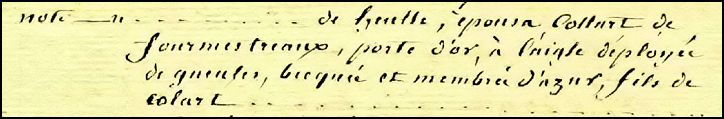 note — n . . . . . . . . . . de heulle, épousa Collart de
fourmestreaux, porte d'or, à l'aigle déployée
de gueules, becqué et membré d'azur, fils de
colart . . . . . . . . . . . . . . . . . .